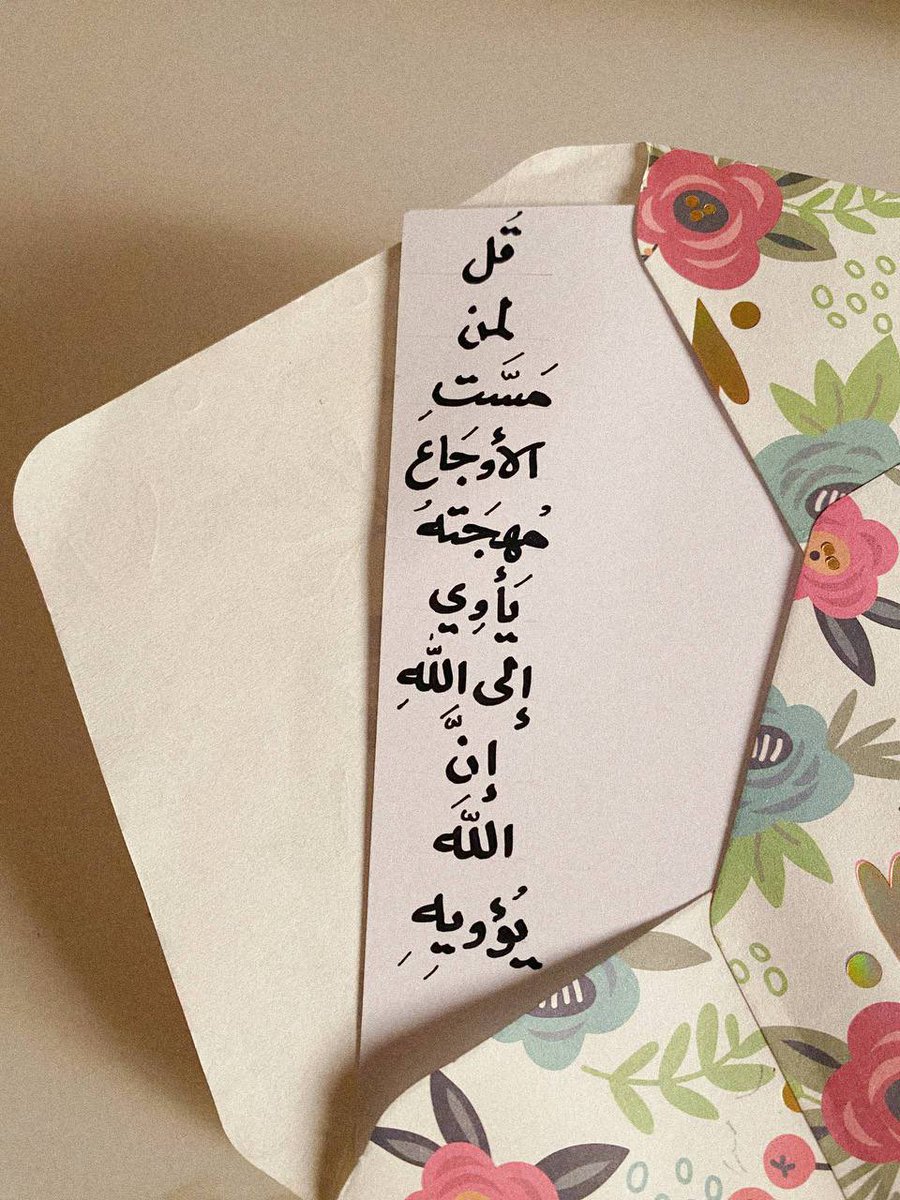 قُل
لمن
مَسَّتِ
الأوجَاع
مُهجَتهُ
يَأوِي
إلى اللّٰهِ
إنَّ
اللَّهَ
يُؤويهِ